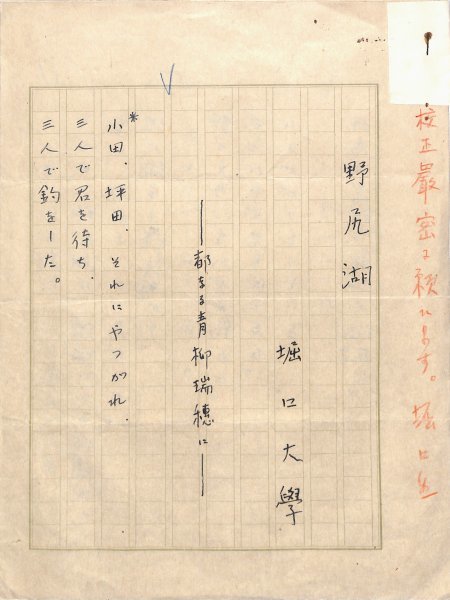 校正嚴密に願ひます。堀口生
野尻湖
堀口大學
——都なる青柳瑞穗に——
※小田、坪田、それにやつがれ、
三人で君を待ち、
三人で釣をした。